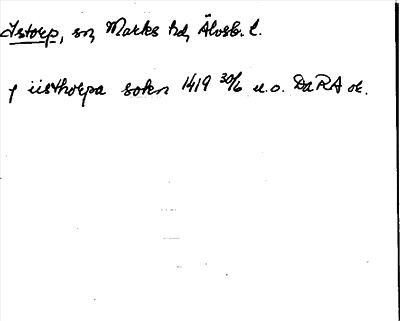 Istorp, sn, Marks hd, Älvsb. l.
j iisthorpa sokn 1419 30/6 u.o. DaRA or.